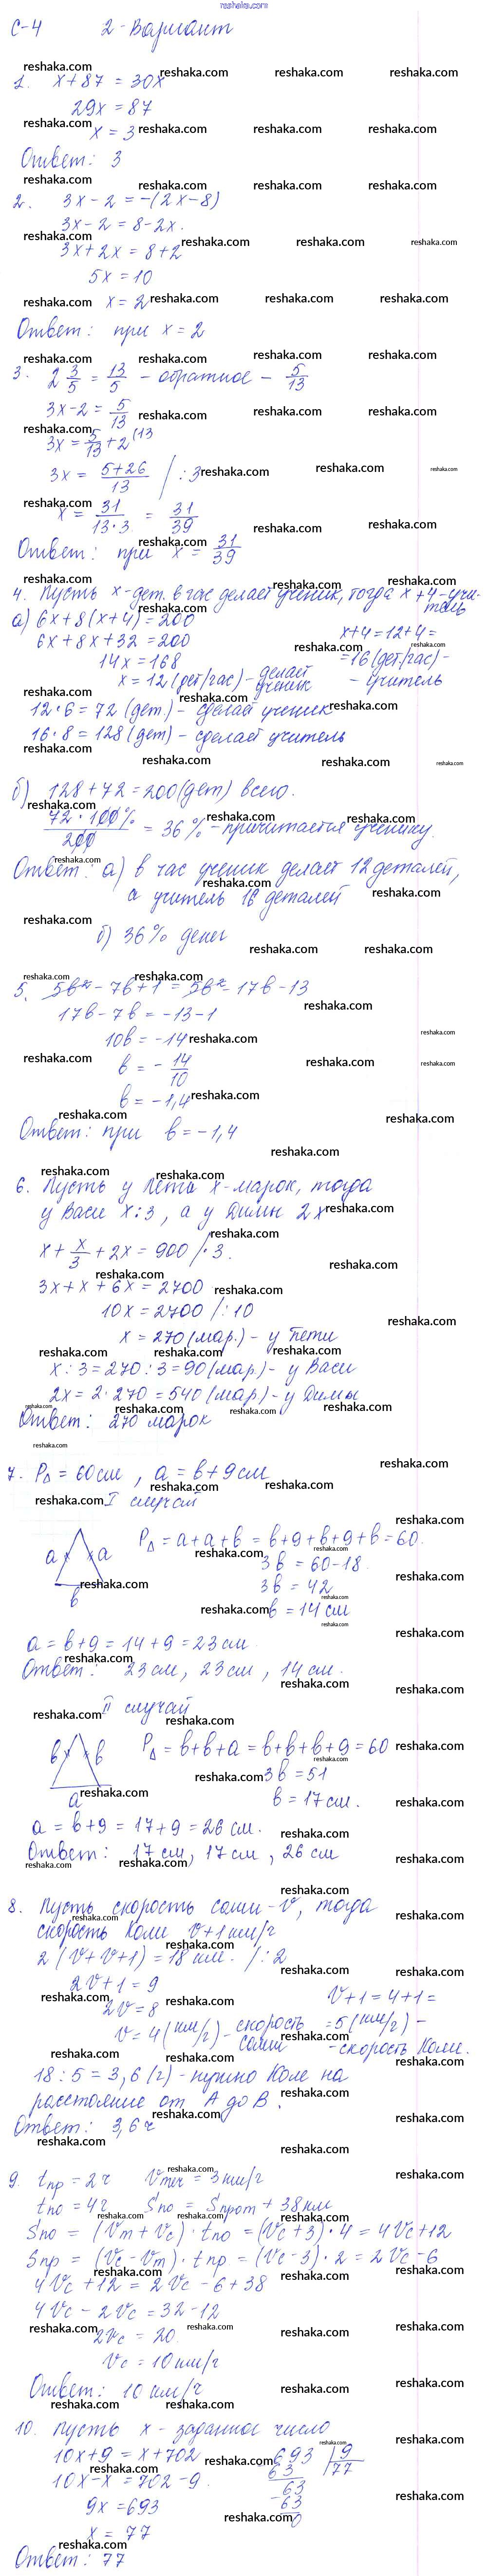 reshaka.com
С-4 2-Вариант
1. x+87 = 30x
29x = 87
x = 3
Ответ: 3
2. 3x-2 = -(2x-8)
3x-2 = 8-2x.
3x+2x = 8+2
5x = 10
x = 2
Ответ: при x = 2
3. 2 3/5 = 13/5 - обратное - 5/13
3x-2 = 5/13
3x = 5/13 + 2 (13
3x = (5+26)/13 | :3
x = 31/(13·3) = 31/39
Ответ: при x = 31/39
4. Пусть x-дет. в час делает ученик, тогда x+4-учитель
а) 6x+8(x+4)=200
6x+8x+32=200
14x=168
x=12 (дет/час) - делает ученик
x+4=12+4=
=16 (дет/час)-
- учитель
12·6=72 (дет.) - сделал ученик
16·8=128 (дет) - сделал учитель
б) 128+72=200 (дет) всего.
72·100%/200 = 36% - причитается ученику.
Ответ: а) в час ученик делает 12 деталей,
а учитель 16 деталей
б) 36% денег
5. 5b²-7b+1 = 5b²-17b-13
17b-7b = -13-1
10b = -14
b = -14/10
b = -1,4
Ответ: при b = -1,4
6. Пусть у Пети x-марок, тогда
у Васи x:3, а у Димы 2x
x + x/3 + 2x = 900 /·3.
3x+x+6x = 2700
10x = 2700 /:10
x = 270 (мар.) - у Пети
x:3 = 270:3 = 90 (мар.) - у Васи
2x = 2·270 = 540 (мар) - у Димы
Ответ: 270 марок
7. P△ = 60 см, a = b+9 см
I случай
a a
b
P△ = a+a+b = b+9+b+9+b = 60.
3b = 60-18.
3b = 42
b = 14 см
a = b+9 = 14+9 = 23 см.
Ответ: 23 см, 23 см, 14 см.
II случай
b b
a
P△ = b+b+a = b+b+b+9 = 60
3b = 51
b = 17 см.
a = b+9 = 17+9 = 26 см.
Ответ: 17 см, 17 см, 26 см
8. Пусть скорость Саши - V, тогда
скорость Коли V+1 км/г
2(V+V+1) = 18 км. /:2
2V+1 = 9
2V = 8
V = 4 (км/г) - скорость Саши
V+1 = 4+1 =
=5 (км/г) -
- скорость Коли.
18:5 = 3,6 (г) - нужно Коле на
расстояние от А до В.
Ответ: 3,6 ч
9. tпр = 2ч Vтеч = 3 км/г
tпо = 4ч Sпо = Sпрот + 38 км
Sпо = (Vт + Vс)·tпо = (Vс+3)·4 = 4Vс+12
Sпр = (Vс-Vт)·tпр = (Vс-3)·2 = 2Vс-6
4Vс+12 = 2Vс-6+38
4Vс-2Vс = 32-12
2Vс = 20
Vс = 10 км/г
Ответ: 10 км/ч
10. Пусть x - заданное число
10x+9 = x+702
10x-x = 702-9.
9x = 693
x = 77
693 | 9
63 | 77
63
-63
0
Ответ: 77